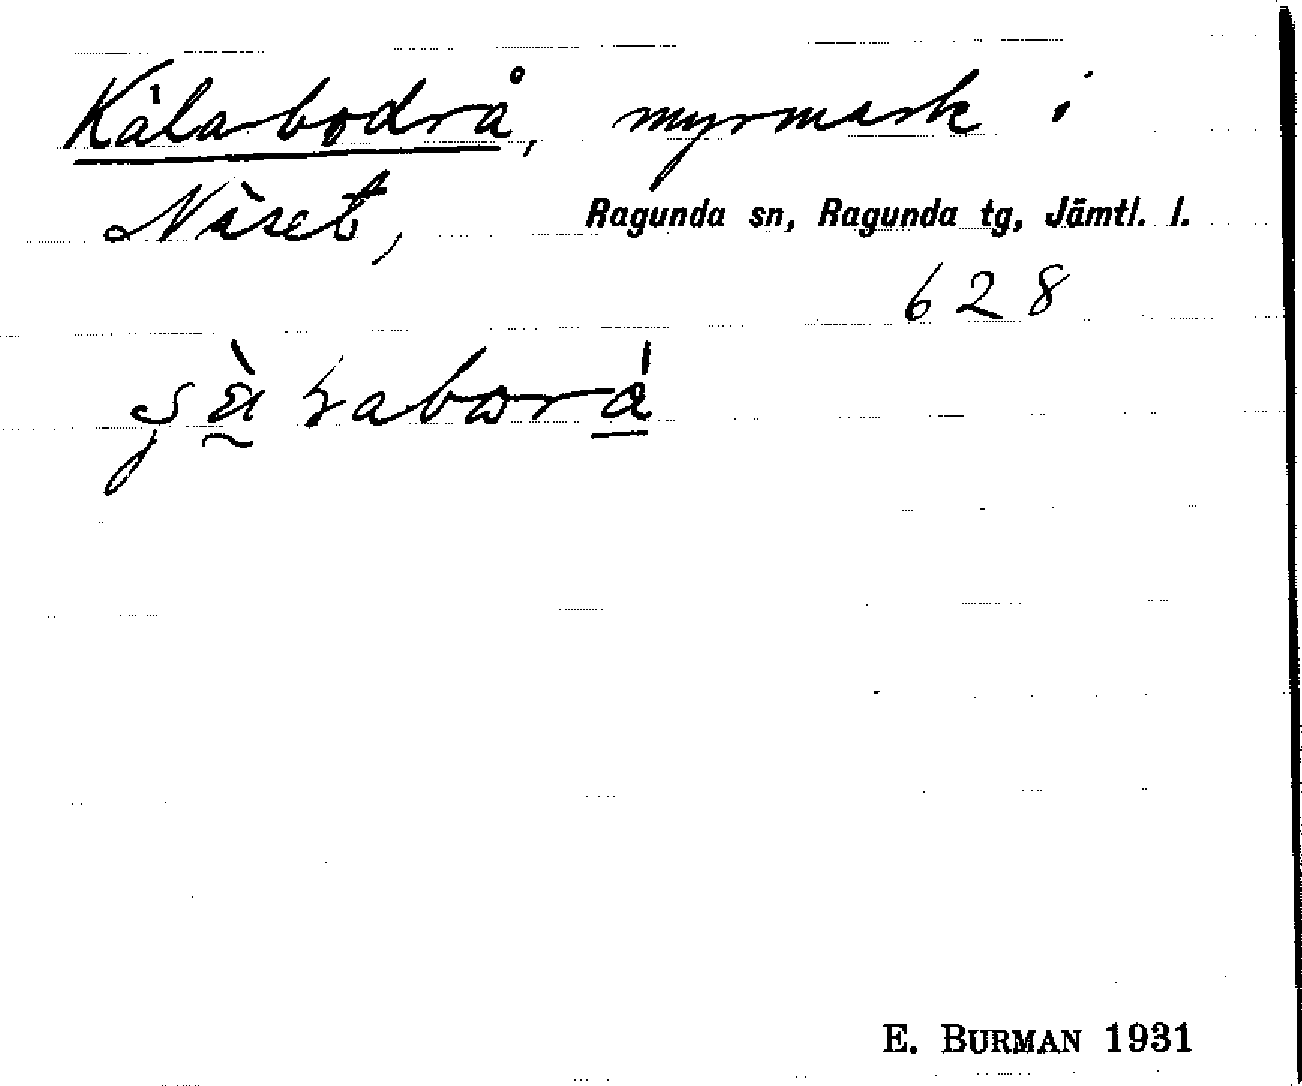 Kälabodrå, myrmark i
Näset, Ragunda sn, Ragunda tg, Jämtl. l.
628
E. BURMAN 1931